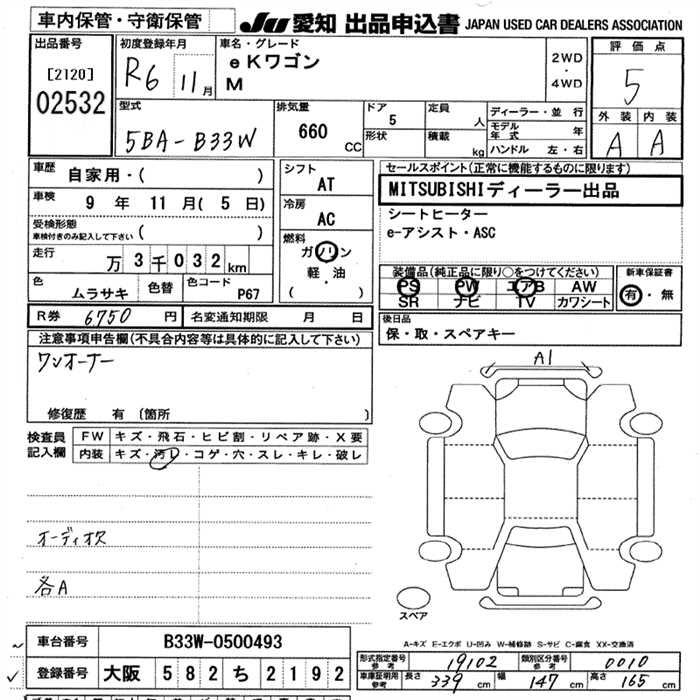 車内保管・守衛保管
JU 愛知 出品申込書 JAPAN USED CAR DEALERS ASSOCIATION
出品番号
[2120]
02532
初度登録年月
R6 11月
車名・グレード
eKワゴン
M
2WD
・
4WD
評価点
5
外装 内装
A A
型式
5BA-B33W
排気量
660 CC
ドア
5
形状
定員
人
積載
kg
ディーラー・並行
モデル年式 年
ハンドル 左・右
車歴 自家用・( )
車検 9年 11月( 5日)
受検形態
車検付きのみ記入して下さい ( )
走行 万3千032km
色 ムラサキ
色替
色コード P67
R券 6,750 円
名変通知期限 月 日
シフト
AT
冷房
AC
燃料
ガソリン
軽・油
( )
セールスポイント(正常に機能するものに限ります)
MITSUBISHIディーラー出品
シートヒーター
e-アシスト・ASC
装備品(純正品に限り○をつけてください)
PS PW エアB AW
SR ナビ TV カワシート
新車保証書
有・無
後日品
保・取・スペアキー
注意事項申告欄(不具合内容等は具体的に記入して下さい)
ワンオーナー
修復歴 有 (箇所 )
検査員記入欄
FW キズ・飛石・ヒビ割・リペア跡・X要
内装 キズ・汚レ・コゲ・穴・スレ・キレ・破レ
オーディオス
各A
A1
スペア
A-キズ E-エクボ U-凹み W-補修跡 S-サビ C-腐食 XX-交換済
車台番号 B33W-0500493
登録番号 大阪 582 ち 2192
形式指定番号 参考 19102
類別区分番号 参考 0010
車庫証明用 参考 長さ 339 cm 幅 147 cm 高さ 165 cm